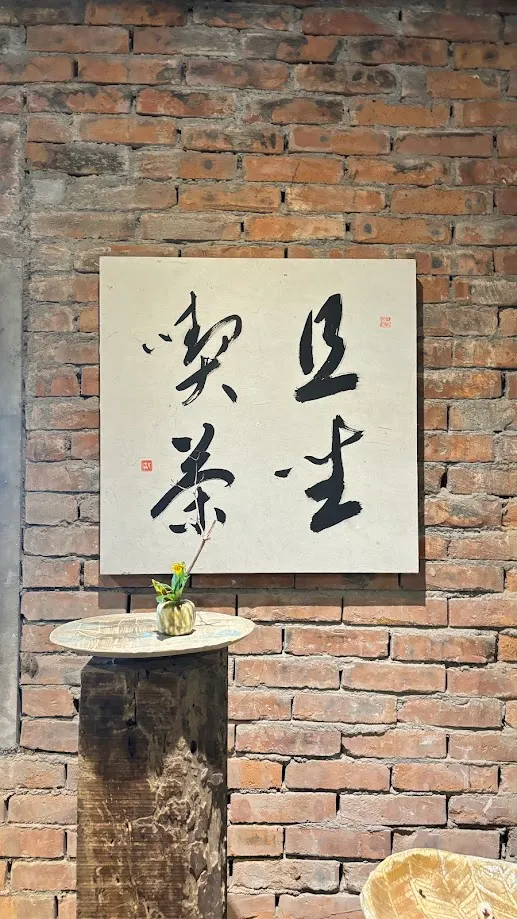 且坐
喫茶